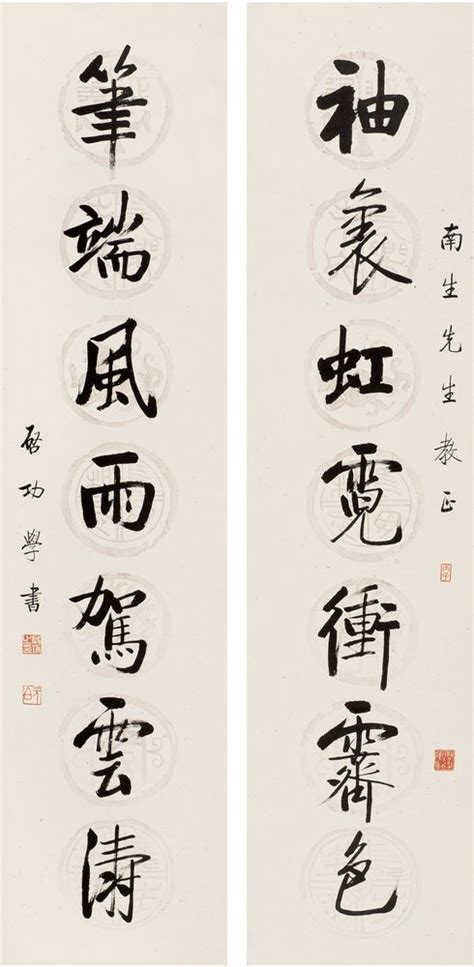 南生先生教正
袖裏虹霓衝霽色
筆端風雨駕雲濤
啓功學書